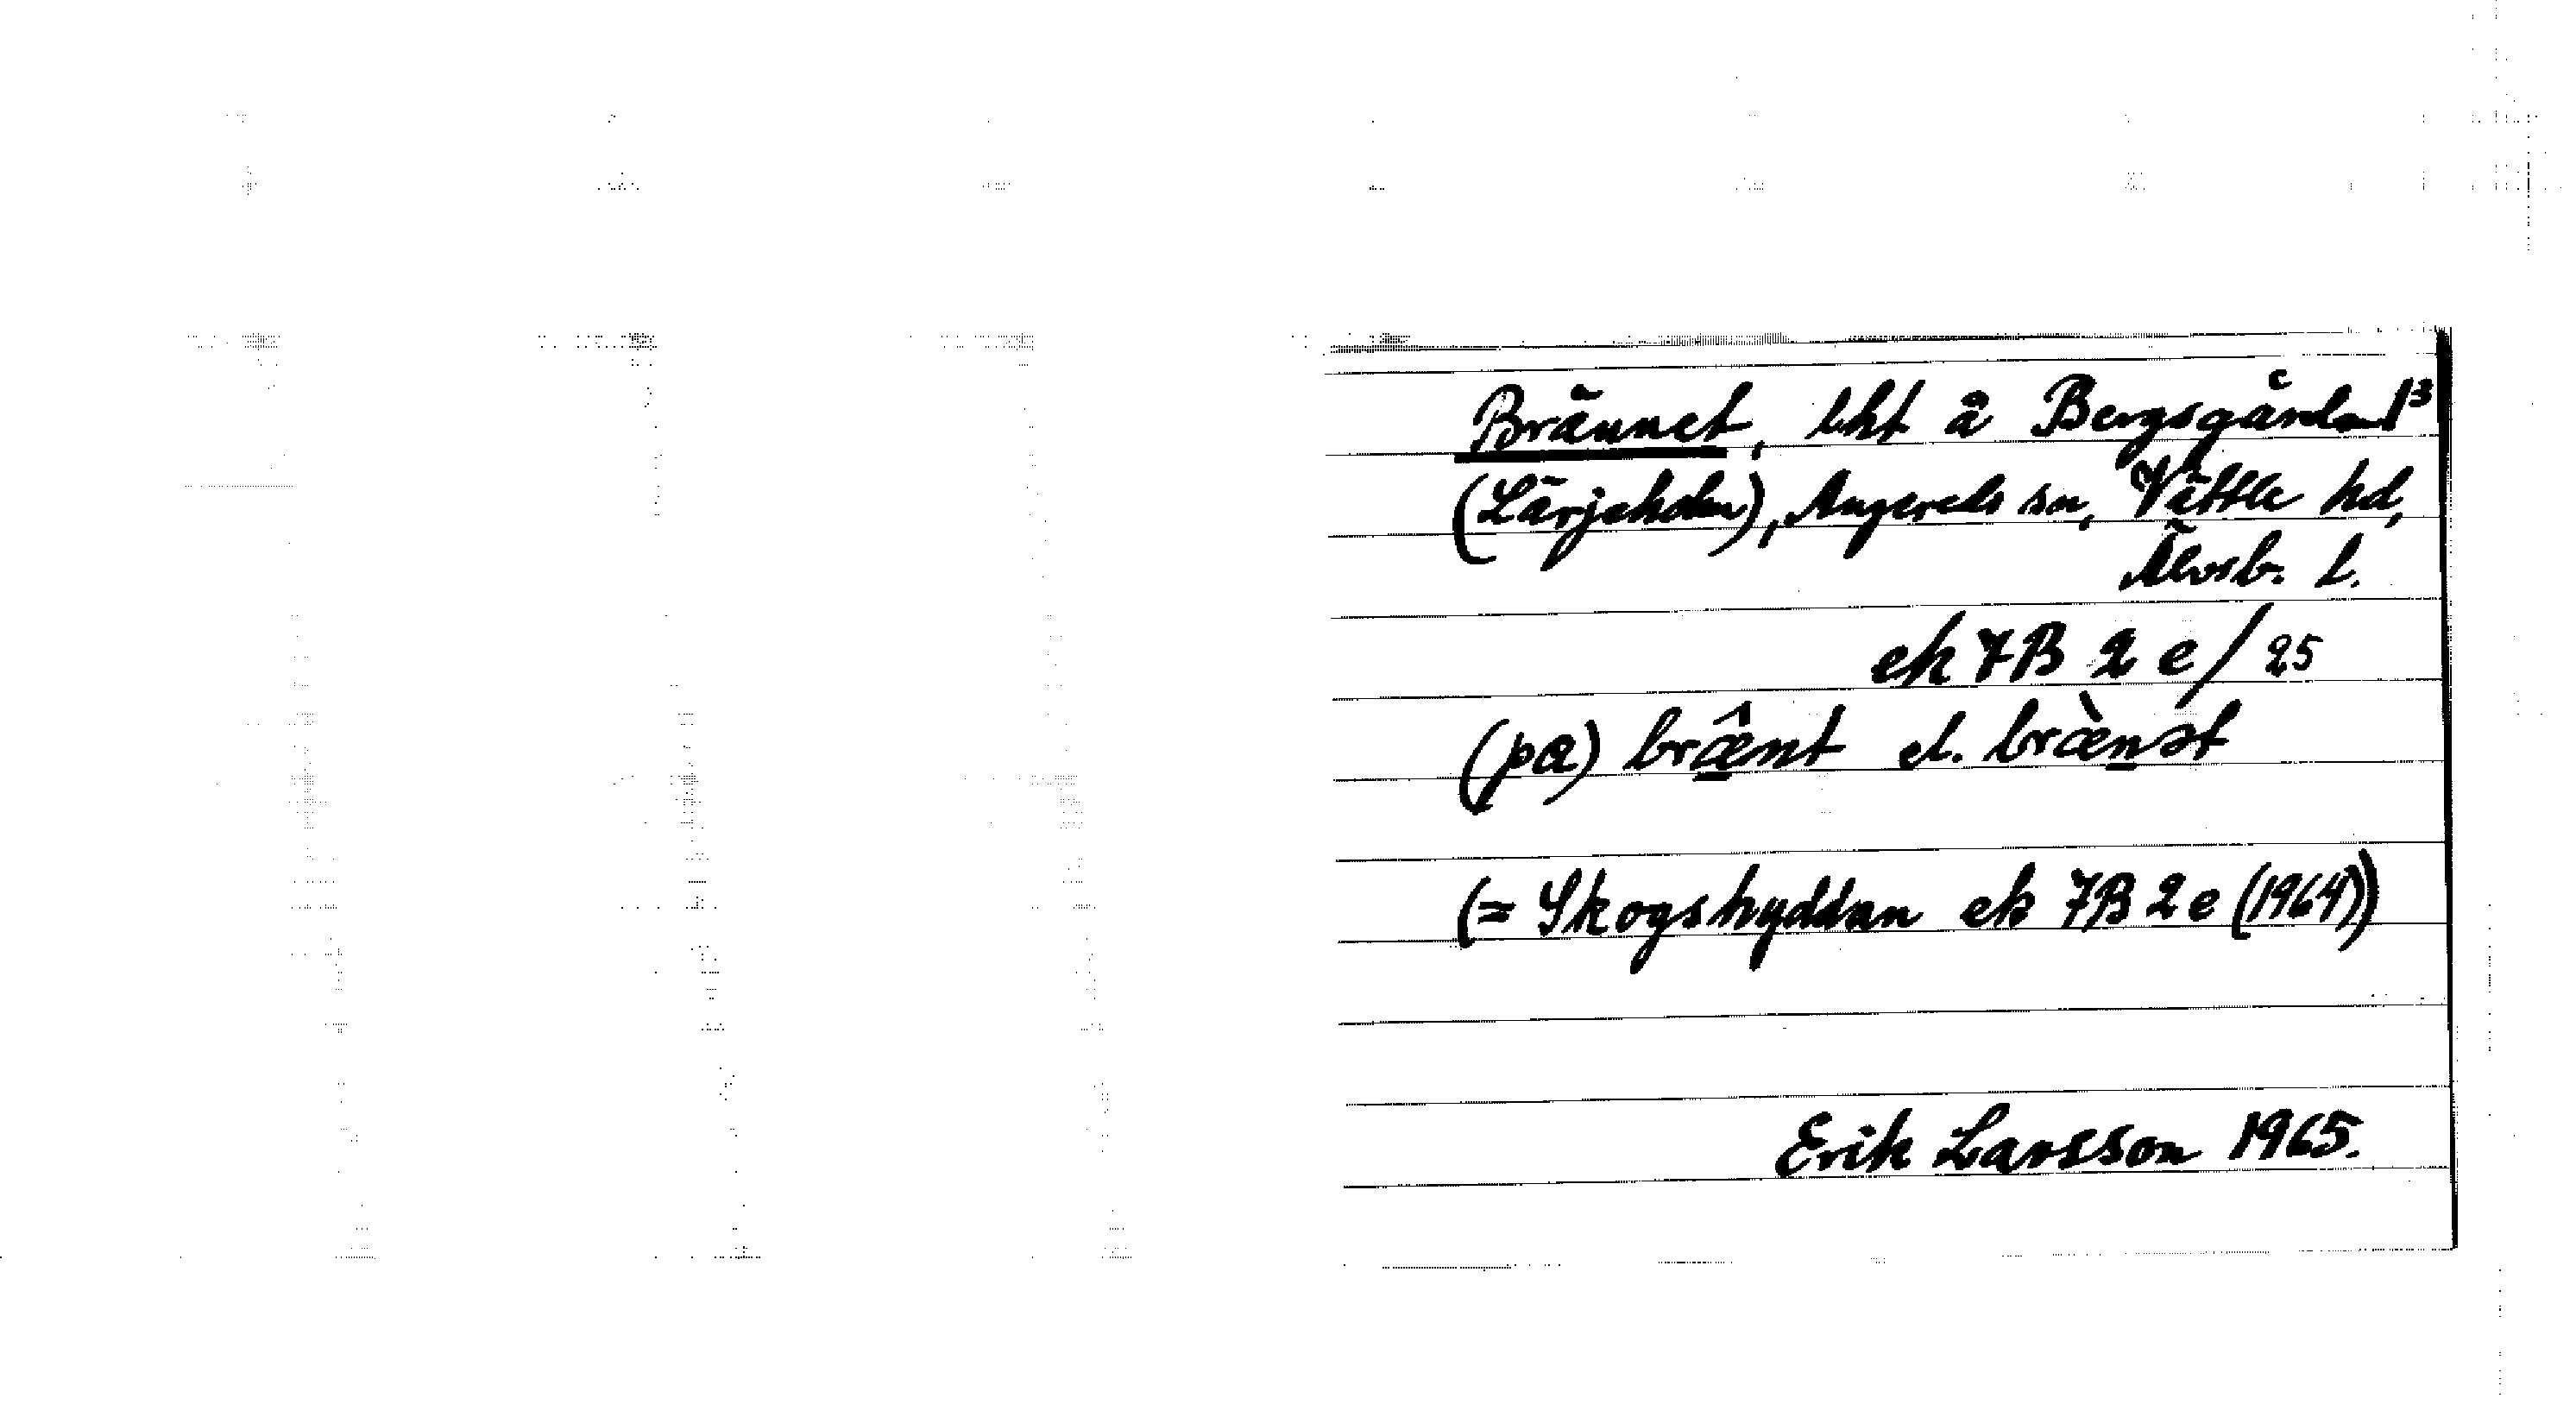 Brännet, lht å Bergsgården 1³
(Lärjeholm), Angereds sn, Vättle hd,
Älvsb. l.
ek 7B 2 e/25
(pa) bræ̂nt el. bræ̀nət
(= Skogshyddan ek 7B 2 e (1964))
Erik Larsson 1965.